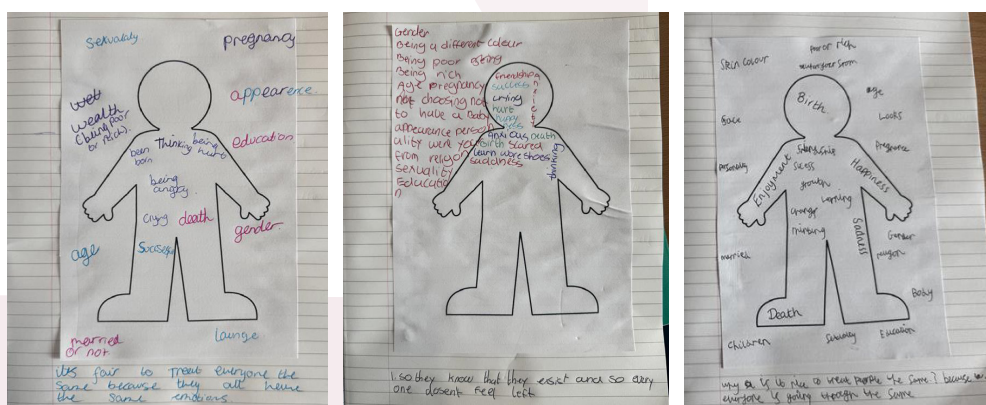 sexuality
pregnancy
appearence
wealth
(being poor
or rich).
education
been
born
Thinking
being
hurt
being
angery
Crying
death
gender
age
married
or not
its fair to treat everyone the
same because they all
the same emotions
Gender
Being a different Colour
Being poor
Being rich
Age pregnancy
not choosing not
to have a baby
appearance person
ality were you
From religon
sexuality
Educatio
n
friendship
success
crying
hurt
happy
anxious death
Birth scared
learn
saddness
thinking
1. so they know that they exsist and so every
one dosent feel left
Skin Colour
poor or rich
Birth
age
Looks
Race
personality
Enjoyment
Happiness
growth
Learning
change
thinking
Sadness
Gender
religon
married
Body
Death
Children
Sexuality
Education
why is it nice to treat people the same? because
everyone is going through the same